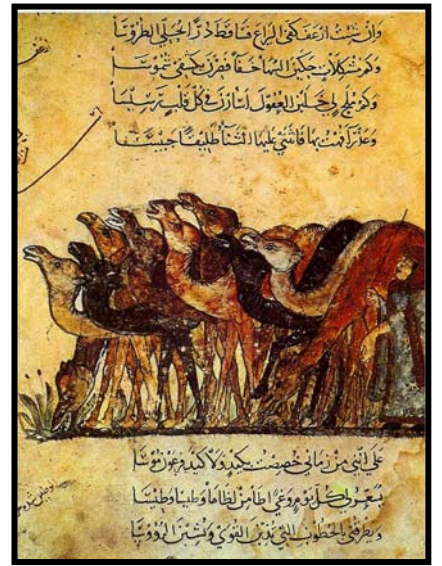 وان شئت ارعف كفي اليراع فساقط درا يحلي الطروسا
وكم مشكلات حكين السها خفاً فصرن بكشفي شموسا
وكم ملح لي خلبن العقول اسارن في كل قلب رسيسا
وعذرا فهت بها فانثنى عليها الثنا طليقا حبيسا
على انني من زماني خصصت بكيد ولا كيد فرعون موسا
يسعر لي كل يوم وغى اطا من لظاها وطيسا وطيسا
ويطرقني بالخطوب التي يذبن القوى ويشبن الرووسا